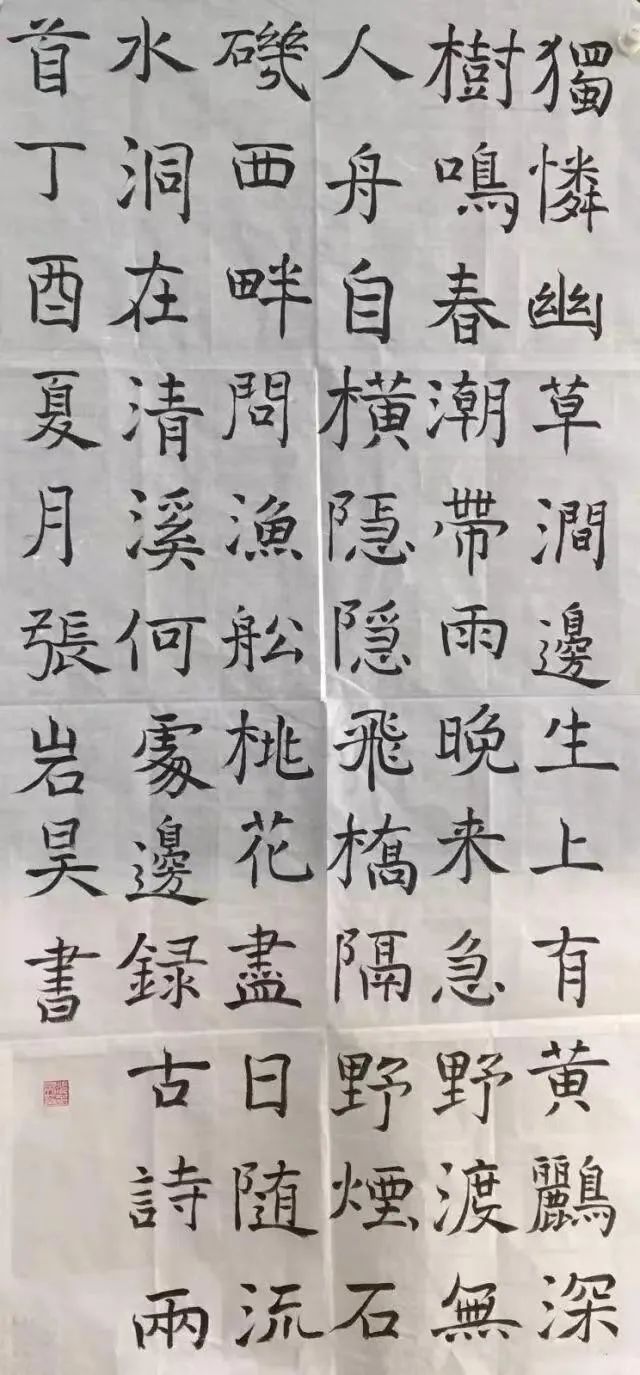 獨憐幽草澗邊生上有黄鸝深
樹鳴春潮帶雨晚来急野渡無
人舟自横隱隱飛橋隔野煙石
磯西畔問漁舩桃花盡日随流
水洞在清溪何處邊録古詩兩
首丁酉夏月張岩昊書